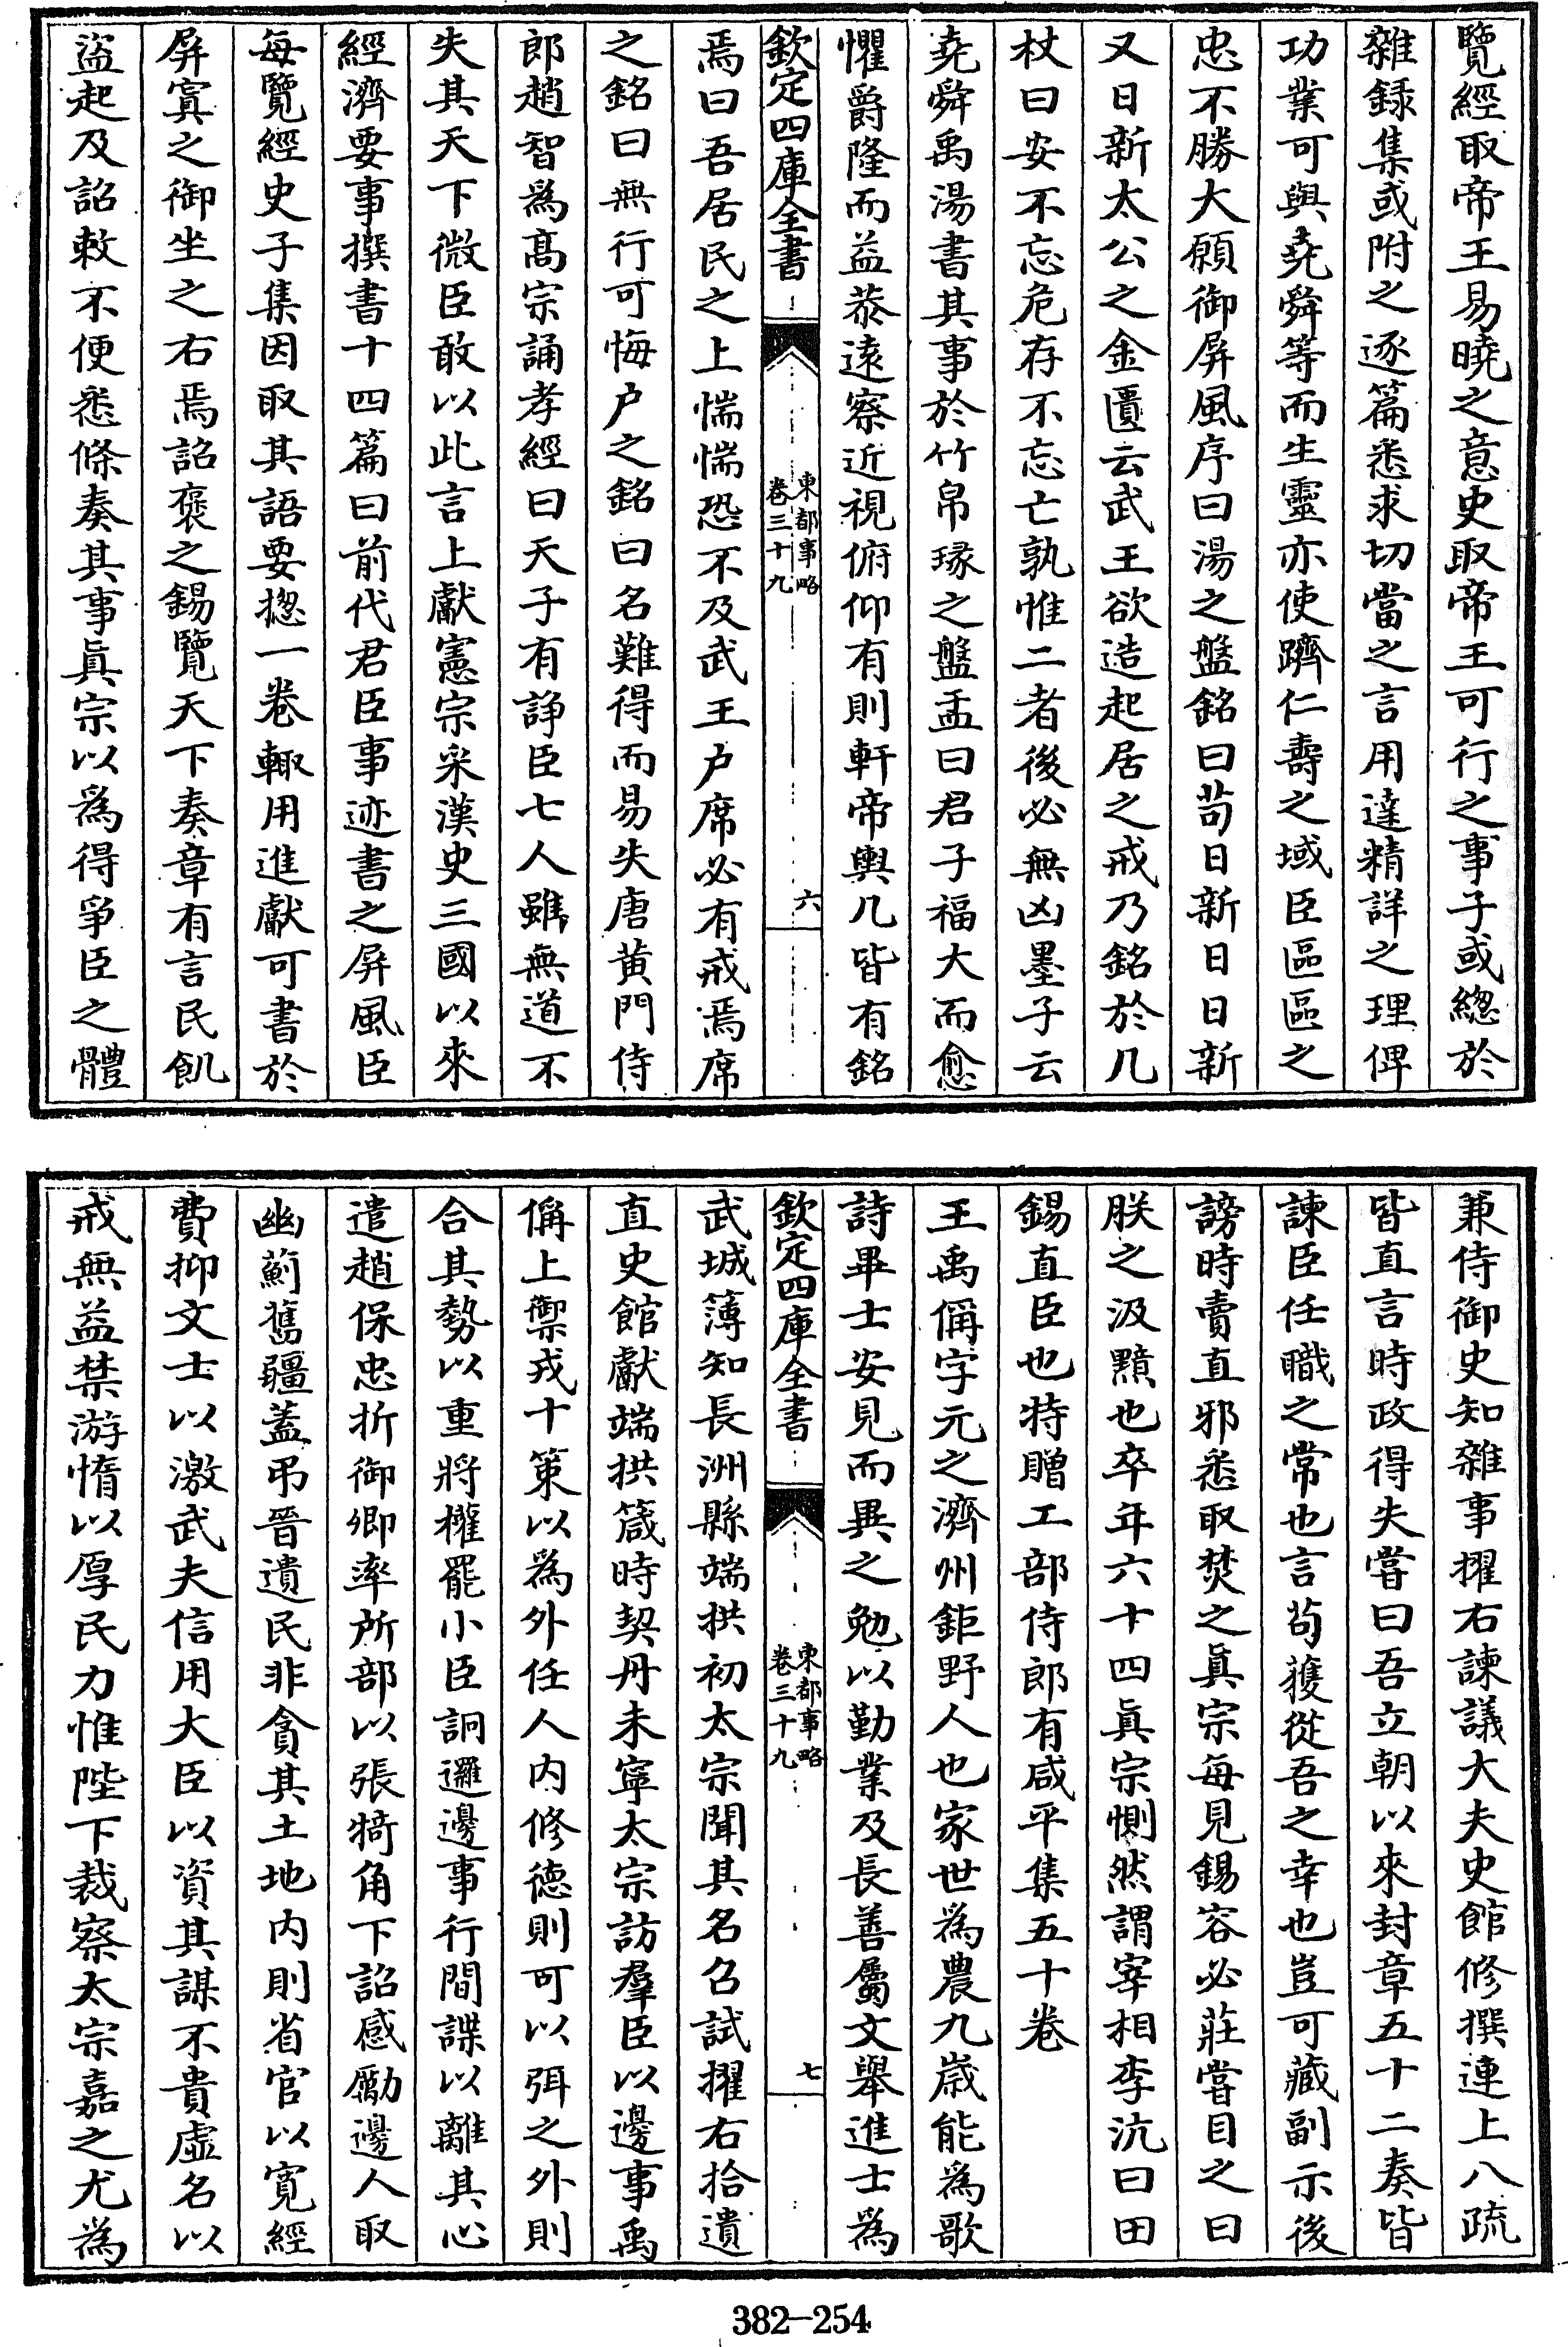 覽經取帝王易曉之意史取帝王可行之事子或緫於
雜録集或附之逐篇悉求切當之言用達精詳之理俾
功業可與堯舜等而生靈亦使躋仁壽之域臣區區之
忠不勝大願御屏風序曰湯之盤銘曰茍日新日日新
又日新太公之金匱云武王欲造起居之戒乃銘於几
杖曰安不忘危存不忘亡孰惟二者後必無凶墨子云
堯舜禹湯書其事於竹帛瑑之盤盂曰君子福大而愈
懼爵隆而益恭遠察近視俯仰有則軒帝輿几皆有銘
欽定四庫全書
東都事略
卷三十九
六
焉曰吾居民之上惴惴恐不及武王户席必有戒焉席
之銘曰無行可悔户之銘曰名難得而易失唐黄門侍
郎趙智為髙宗誦孝經曰天子有諍臣七人雖無道不
失其天下微臣敢以此言上獻憲宗采漢史三國以來
經濟要事撰書十四篇曰前代君臣事迹書之屏風臣
每覽經史子集因取其語要揔一卷輙用進獻可書於
屏寘之御坐之右焉詔褒之錫覽天下奏章有言民飢
盜起及詔敕不便悉條奏其事真宗以為得爭臣之體
兼侍御史知雜事擢右諫議大夫史館修撰連上八疏
皆直言時政得失嘗曰吾立朝以來封章五十二奏皆
諫臣任職之常也言茍獲從吾之幸也豈可藏副示後
謗時賣直邪悉取焚之真宗每見錫容必莊嘗目之曰
朕之汲黯也卒年六十四真宗惻然謂宰相李沆曰田
錫直臣也特贈工部侍郎有咸平集五十卷
王禹偁字元之濟州鉅野人也家世為農九歲能為歌
詩畢士安見而異之勉以勤業及長善屬文舉進士為
欽定四庫全書
東都事略
卷三十九
七
武城簿知長洲縣端拱初太宗聞其名召試擢右拾遺
直史館獻端拱箴時契丹未寧太宗訪羣臣以邊事禹
偁上禦戎十策以為外任人内修德則可以弭之外則
合其勢以重將權罷小臣詗邏邊事行間諜以離其心
遣趙保忠折御卿率所部以張犄角下詔感勵邊人取
幽薊舊疆蓋弔晉遺民非貪其土地内則省官以寛經
費抑文士以激武夫信用大臣以資其謀不貴虚名以
戒無益禁游惰以厚民力惟陛下裁察太宗嘉之尤為
382-254